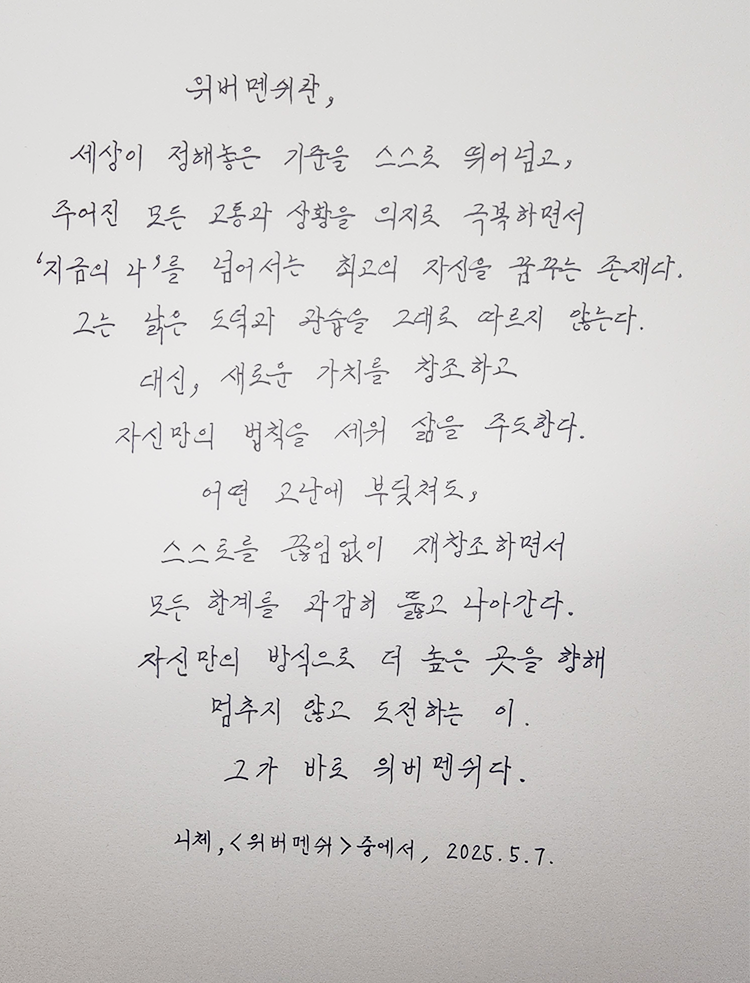 위버멘쉬란,
세상이 정해놓은 기준을 스스로 뛰어넘고,
주어진 모든 고통과 상황을 의지로 극복하면서
‘지금의 나’를 넘어서는 최고의 자신을 꿈꾸는 존재다.
그는 낡은 도덕과 관습을 그대로 따르지 않는다.
대신, 새로운 가치를 창조하고
자신만의 법칙을 세워 삶을 주도한다.
어떤 고난에 부딪쳐도,
스스로를 끊임없이 재창조하면서
모든 한계를 과감히 뚫고 나아간다.
자신만의 방식으로 더 높은 곳을 향해
멈추지 않고 도전하는 이.
그가 바로 위버멘쉬다.
니체, <위버멘쉬> 중에서, 2025.5.7.